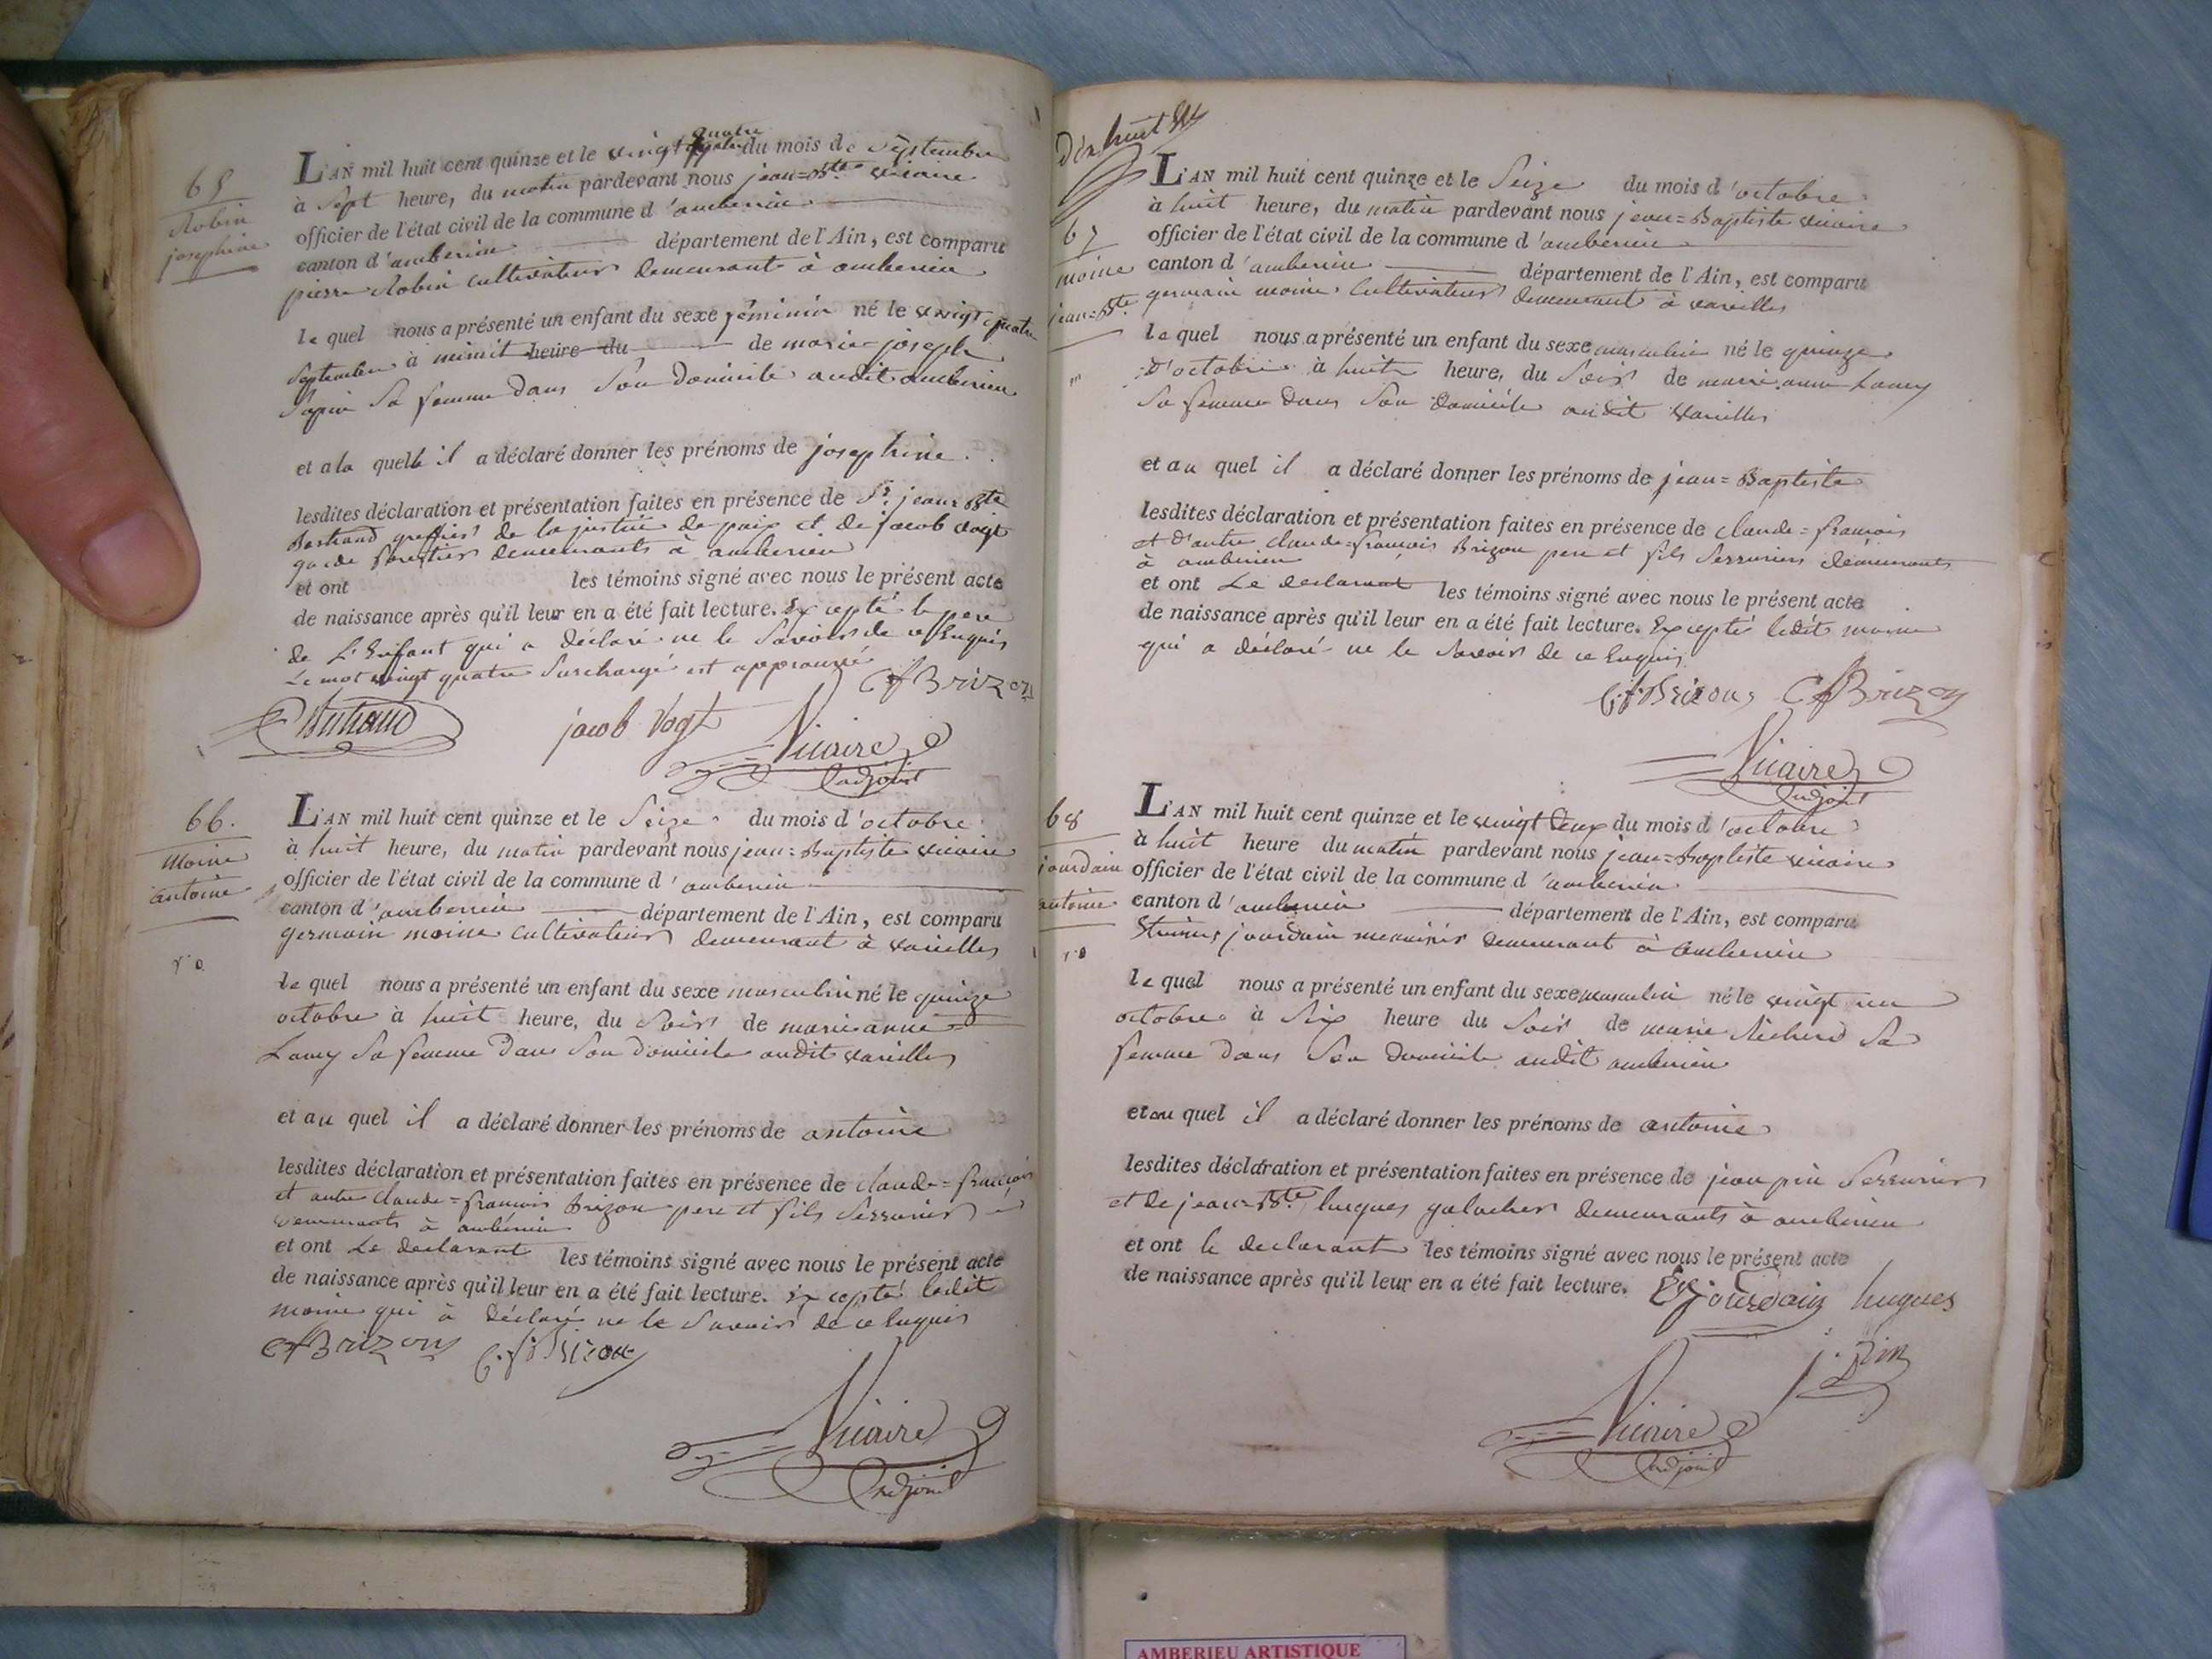 65
Robin
josephine
L'AN mil huit cent quinze et le vingt quatre du mois de Septembre
à Sept heure, du matin pardevant nous jean=Bte vicaire
officier de l'état civil de la commune d'amberieu
canton d'amberieu département de l'Ain, est comparu
pierre Robin cultivateur demeurant à amberieu
le quel nous a présenté un enfant du sexe féminin né le vingt quatre
Septembre à minuit heure du de marie joseph
Sapin Sa femme dans Son Domicile audit amberieu
et a la quelle il a déclaré donner les prénoms de josephine.
lesdites déclaration et présentation faites en présence de Sr. jean Bte
Bertrand greffier de la justice de paix et de jacob vogt
garde forestier demeurants à amberieu
et ont les témoins signé avec nous le présent acte
de naissance après qu'il leur en a été fait lecture. Excepté le pere
de L'Enfant qui a Déclaré ne le Savoir de ce Enquis
Le mot vingt quatre Surchargé est approuvé
CfBrizon
Bertrand jacob Vogt Vicaire
adjoint
66.
Moine
antoine
L'AN mil huit cent quinze et le Seize du mois d'octobre
à huit heure, du matin pardevant nous jean=Baptiste vicaire
officier de l'état civil de la commune d'amberieu
canton d'amberieu département de l'Ain, est comparu
germain moine cultivateur demeurant à vareilles
le quel nous a présenté un enfant du sexe masculin né le quinze
octobre à huit heure, du Soir de marie anne
Lamy Sa femme Dans Son Domicile audit vareilles
et au quel il a déclaré donner les prénoms de antoine
lesdites déclaration et présentation faites en présence de claude=françois
et autre claude=françois Brizon pere et fils Serruriers
demeurants à amberieu
et ont Le declarant les témoins signé avec nous le présent acte
de naissance après qu'il leur en a été fait lecture. Excepté ledit
moine qui à Déclaré ne le Savoir de ce Enquis
CfBrizon C.f.Brizon
Vicaire
adjoint
Dix huit
67
moine
jean=Bte
L'AN mil huit cent quinze et le Seize du mois d'octobre
à huit heure, du matin pardevant nous jean=Baptiste vicaire
officier de l'état civil de la commune d'amberieu
canton d'amberieu département de l'Ain, est comparu
germain moine Cultivateur demeurant à vareilles
le quel nous a présenté un enfant du sexe masculin né le quinze
D'octobre à huit heure, du Soir de marie anne Lamy
Sa femme Dans Son Domicile audit vareilles
et au quel il a déclaré donner les prénoms de jean=Baptiste
lesdites déclaration et présentation faites en présence de claude=francois
et d'autre claude=francois Brizon pere et fils Serruriers demeurants
à amberieu
et ont Le declarant les témoins signé avec nous le présent acte
de naissance après qu'il leur en a été fait lecture. Excepté ledit moine
qui a déclaré ne le Savoir de ce Enquis
C.f.Brizon CfBrizon
Vicaire
adjoint
68
jourdain
antoine
L'AN mil huit cent quinze et le vingt Deux du mois d'octobre
à huit heure du matin pardevant nous jean=baptiste vicaire
officier de l'état civil de la commune d'amberieu
canton d'amberieu département de l'Ain, est comparu
jourdain menuisier demeurant à amberieu
le quel nous a présenté un enfant du sexe masculin né le vingt un
octobre à Six heure du Soir de marie Richerd Sa
femme Dans Son Domicile audit amberieu
et au quel il a déclaré donner les prénoms de antoine
lesdites déclaration et présentation faites en présence de jean pin Serrurier
et de jean=Bte hugues galocher demeurants à amberieu
et ont le declarant les témoins signé avec nous le présent acte
de naissance après qu'il leur en a été fait lecture. Jourdain hugues
j. Pin
Vicaire
adjoint
AMBERIEU ARTISTIQUE